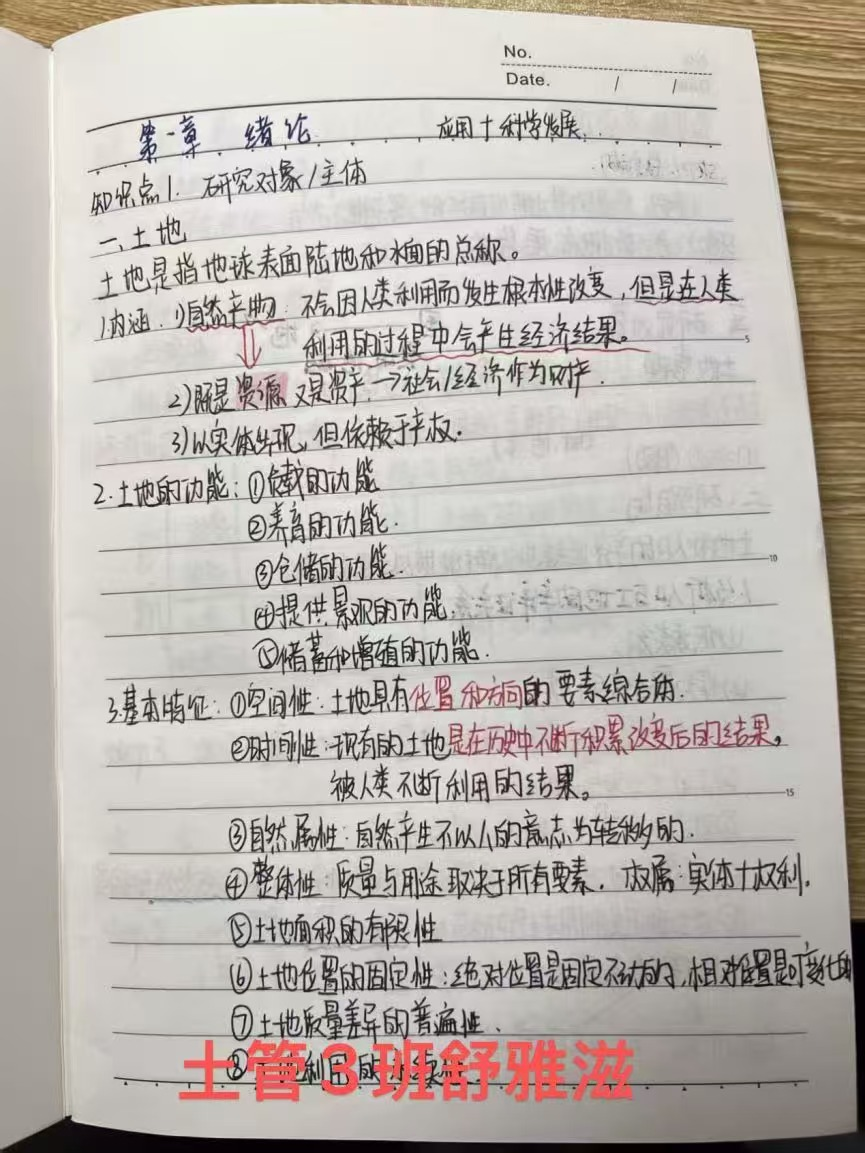 No.
Date. / /
第一章 绪论 应用+科学发展.
知识点1. 研究对象/主体
一、土地
土地是指地球表面陆地和水面的总称。
1.内涵: 1)自然产物: 不会因人类利用而发生根本性改变,但是在人类
利用的过程中会产生经济结果。
5
2)既是资源 又是资产. →社会/经济作为财产.
3)以实体出现,但依赖于产权.
2.土地的功能: ①负载的功能
②养育的功能.
10
③仓储的功能.
④提供景观的功能.
⑤储蓄和增殖的功能.
3.基本特征: ①空间性: 土地具有位置和方向的要素综合体.
②时间性: 现有的土地是在历史中不断积累改变后的结果,
被人类不断利用的结果。
15
③自然属性: 自然产生不以人的意志为转移的.
④整体性: 质量与用途取决于所有要素. 权属: 实体+权利.
⑤土地面积的有限性
⑥土地位置的固定性: 绝对位置是固定不动的,相对位置是可变化的
⑦土地质量差异的普遍性.
⑧土地利用的
土管3班舒雅滋